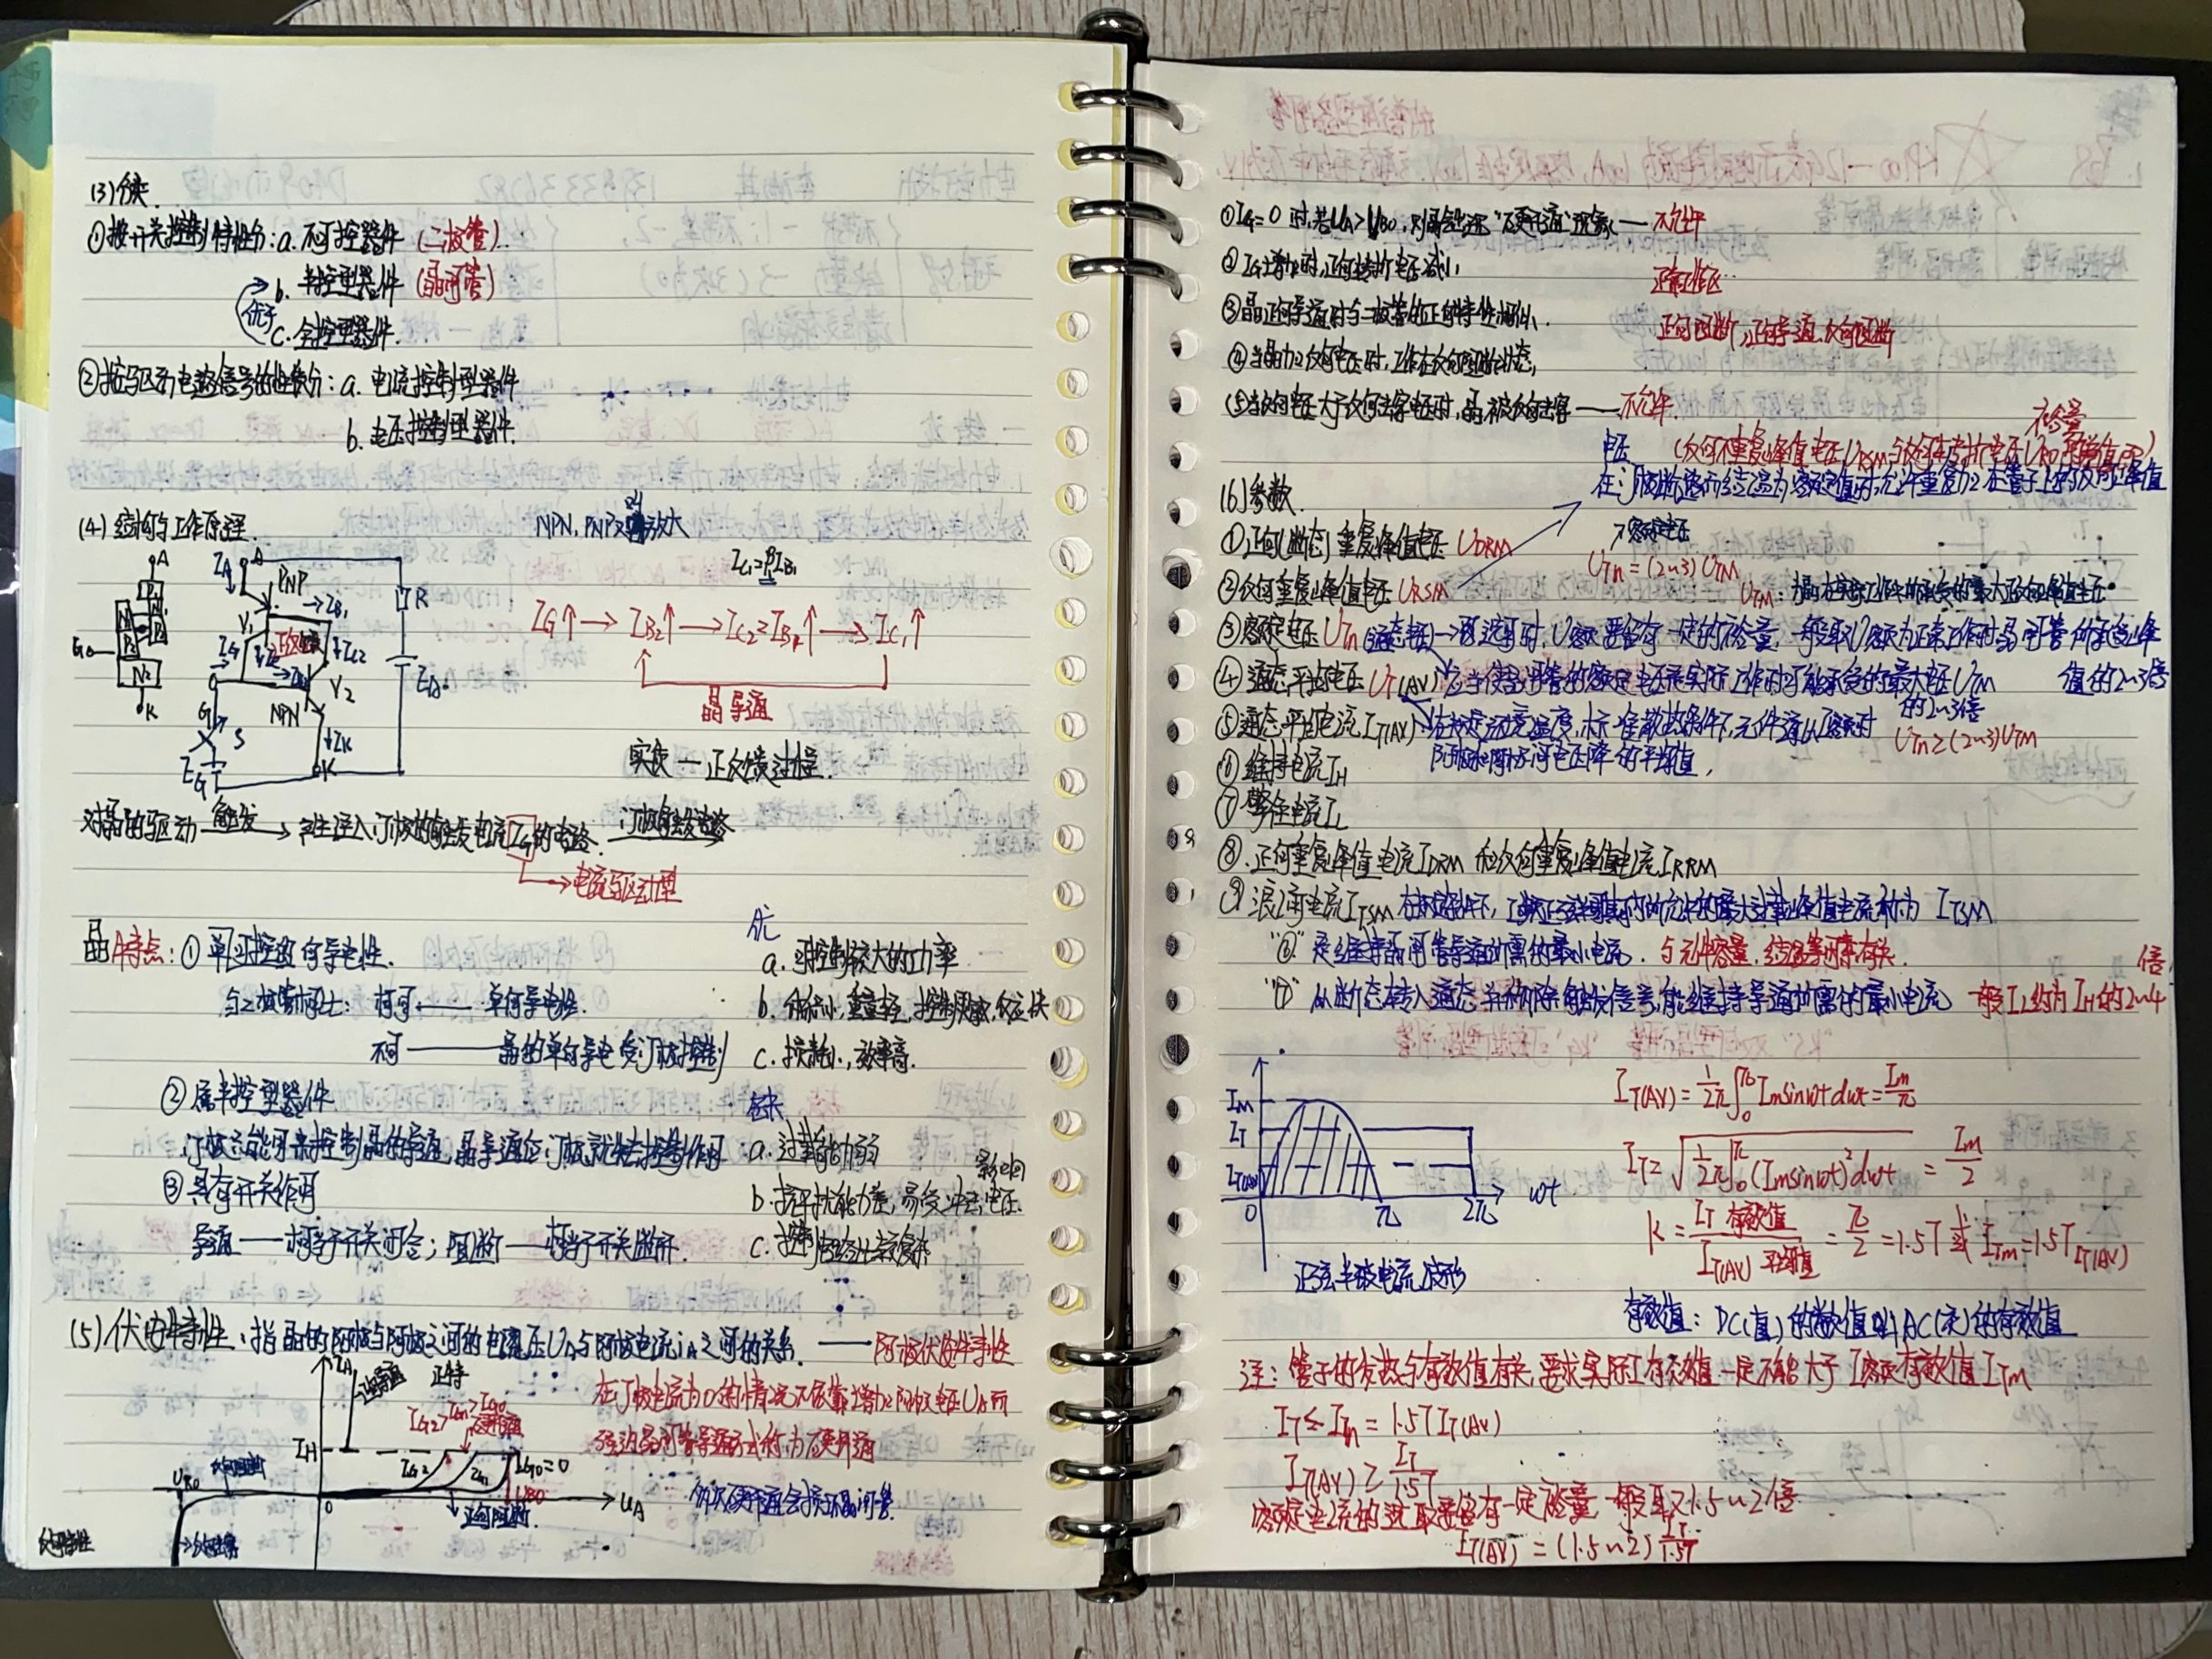 (3) 分类.
①按开关控制特性分: a. 不可控器件 (二极管).
b. 半控型器件 (晶闸管)
优于
c. 全控型器件.
②按驱动电路信号的性质分: a. 电流控制型器件
b. 电压控制型器件.
(4) 结构与工作原理.
NPN, PNP 放大
A
P1
N1 N1
P2 P2
N2
G
K
IA A
PNP
→IB1
V1
R
IG
↓IC2
V2
EA
G
NPN
S
↓IK
K
EG
IC1=βIB1
IG↑→IB2↑→IC2=IB1↑→IC1↑
晶导通
实质—正反馈过程.
对晶的驱动 触发→产生注入门极的触发电流IG的电路. 门极触发电路
→电流驱动型
晶特点: ①单向导电性.
与二极管相比: 相同—— 单向导电性.
不同——晶的单向导电受门极控制
②属半控型器件
门极只能用来控制晶的导通,晶导通后门极就失去控制作用
③具有开关作用
导通——相当于开关闭合; 阻断——相当于开关断开.
优
a. 可控制较大的功率
b. 体积小,重量轻,控制灵敏,反应快
c. 损耗小,效率高.
缺
a. 过载能力弱
b. 抗干扰能力差,易受冲击电压
影响
c. 控制电路比较复杂
(5) 伏安特性: 指晶的阳极与阴极之间的电压UA与阳极电流iA之间的关系. ——阳极伏安特性
IA
正向导通 正特
IG2>IG1>IG0
IH
IG2 IG1 IG0=0
UBO
URO 反向阻断
0
→UA
正向阻断.
反向特性
→反向击穿
在门极电流为0的情况下依靠增加阳极电压UA而
强迫晶闸管导通方式称为硬开通
多次硬开通会损坏晶闸管
①IG=0时,若UA>UBO,则晶会出现"硬开通"现象—不允许
②IG增加时,正向转折电压减小,
正常工作区
③晶正向导通时与二极管的正向特性相似.
正向阻断,正向导通,反向阻断
④当晶加反向电压时,工作在反向阻断状态,
⑤当反向电压大于反向击穿电压时,晶被反向击穿——不允许.
裕量
电压 (反向不重复峰值电压URSM与反向转折电压URO
在门极断路而结温为额定值时,允许重复加在管子上的反向峰值
(6) 参数
①正向(断态)重复峰值电压 UDRM
→额定电压
UTn=(2~3)UTM
②反向重复峰值电压 URSM
UTM: 晶在实际工作中所承受的最大正反向峰值电压
③额定电压UTn(通态电压)→选用时,U额要留有一定的裕量,一般取U额为正常工作时晶闸管所承受峰
值的2~3倍
④通态平均电压UT(AV) 应当使晶闸管的额定电压是实际工作时可能承受的最大电压UTM
的2~3倍
⑤通态平均电流IT(AV) 在规定环境温度,标准散热条件下,元件通以额定时
UTn≥(2~3)UTM
阳极和阴极间电压降的平均值,
⑥维持电流IH
⑦擎住电流IL
⑧.正向重复峰值电流IDRM和反向重复峰值电流IRRM
⑨浪涌电流ITSM 在规定条件下,工频正弦半周期内所允许的最大过载峰值电流称为 ITSM
"⑥" 是维持晶闸管导通所需的最小电流. 与元件容量,结温等因素有关.
"⑦" 从断态转入通态并移除触发信号,能维持导通所需的最小电流 一般IL约为IH的2~4
倍.
IM
IT
IT(AV)
0 π 2π ωt
正弦半波电流波形
IT(AV)=1/2π∫0π Imsinωtdωt=Im/π
IT=√(1/2π∫0π(Imsinωt)²dωt)=Im/2
K=IT 有效值/IT(AV) 平均值=π/2=1.57或ITm=1.57IT(AV)
有效值: DC(直)的数值叫AC(交)的有效值
注: 管子的发热与有效值有关,要求实际I有效值一定不能大于I额定有效值ITM
IT≤ITn=1.57IT(AV)
IT(AV)≥IT/1.57
额定电流的选取要留有一定裕量一般取1.5~2倍
IT(AV)=(1.5~2)IT/1.57